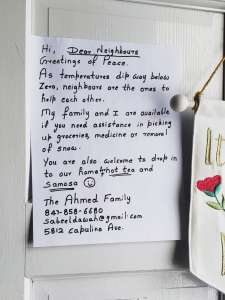 Hi, Dear Neighbours
Greetings of Peace.
As temperatures dip way below
Zero, neighbours are the ones to
help each other.
My family and I are available
if you need assistance in picking
up groceries, medicine or removal
of snow.
You are also welcome to drop in
to our home for hot tea and
Samosa ☺
The Ahmed Family
847-858-6680
sabeeldawah@gmail.com
5812 Capulina Ave.